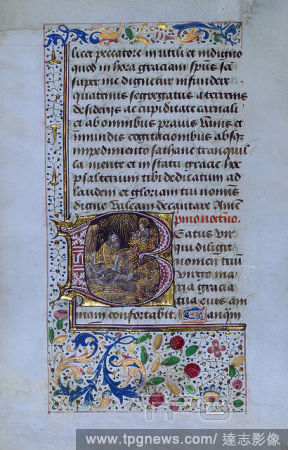 licet peccatore inutili et indigno
quod in hora graciam spūs sc̄i
super me dignetur infundere
quatenus segregatus a terrenis
desideriis ac cupiditate carnali
et ab omnibus pravis vanis et
inmundis cogitacionibus absq̄
impedimento sathane tranquil
la mente et in statu gracie hoc
psalterium tibi dedicatum ad
laudem et gloriam tui nominis
digne valeam decantare Amē
Beatus vir
qui diligit
nomen tuū
virgo ma
ria gracia
tua eius ani
mam confortabit. Tanqm̄
www.tpgnews.com/ 達志影像